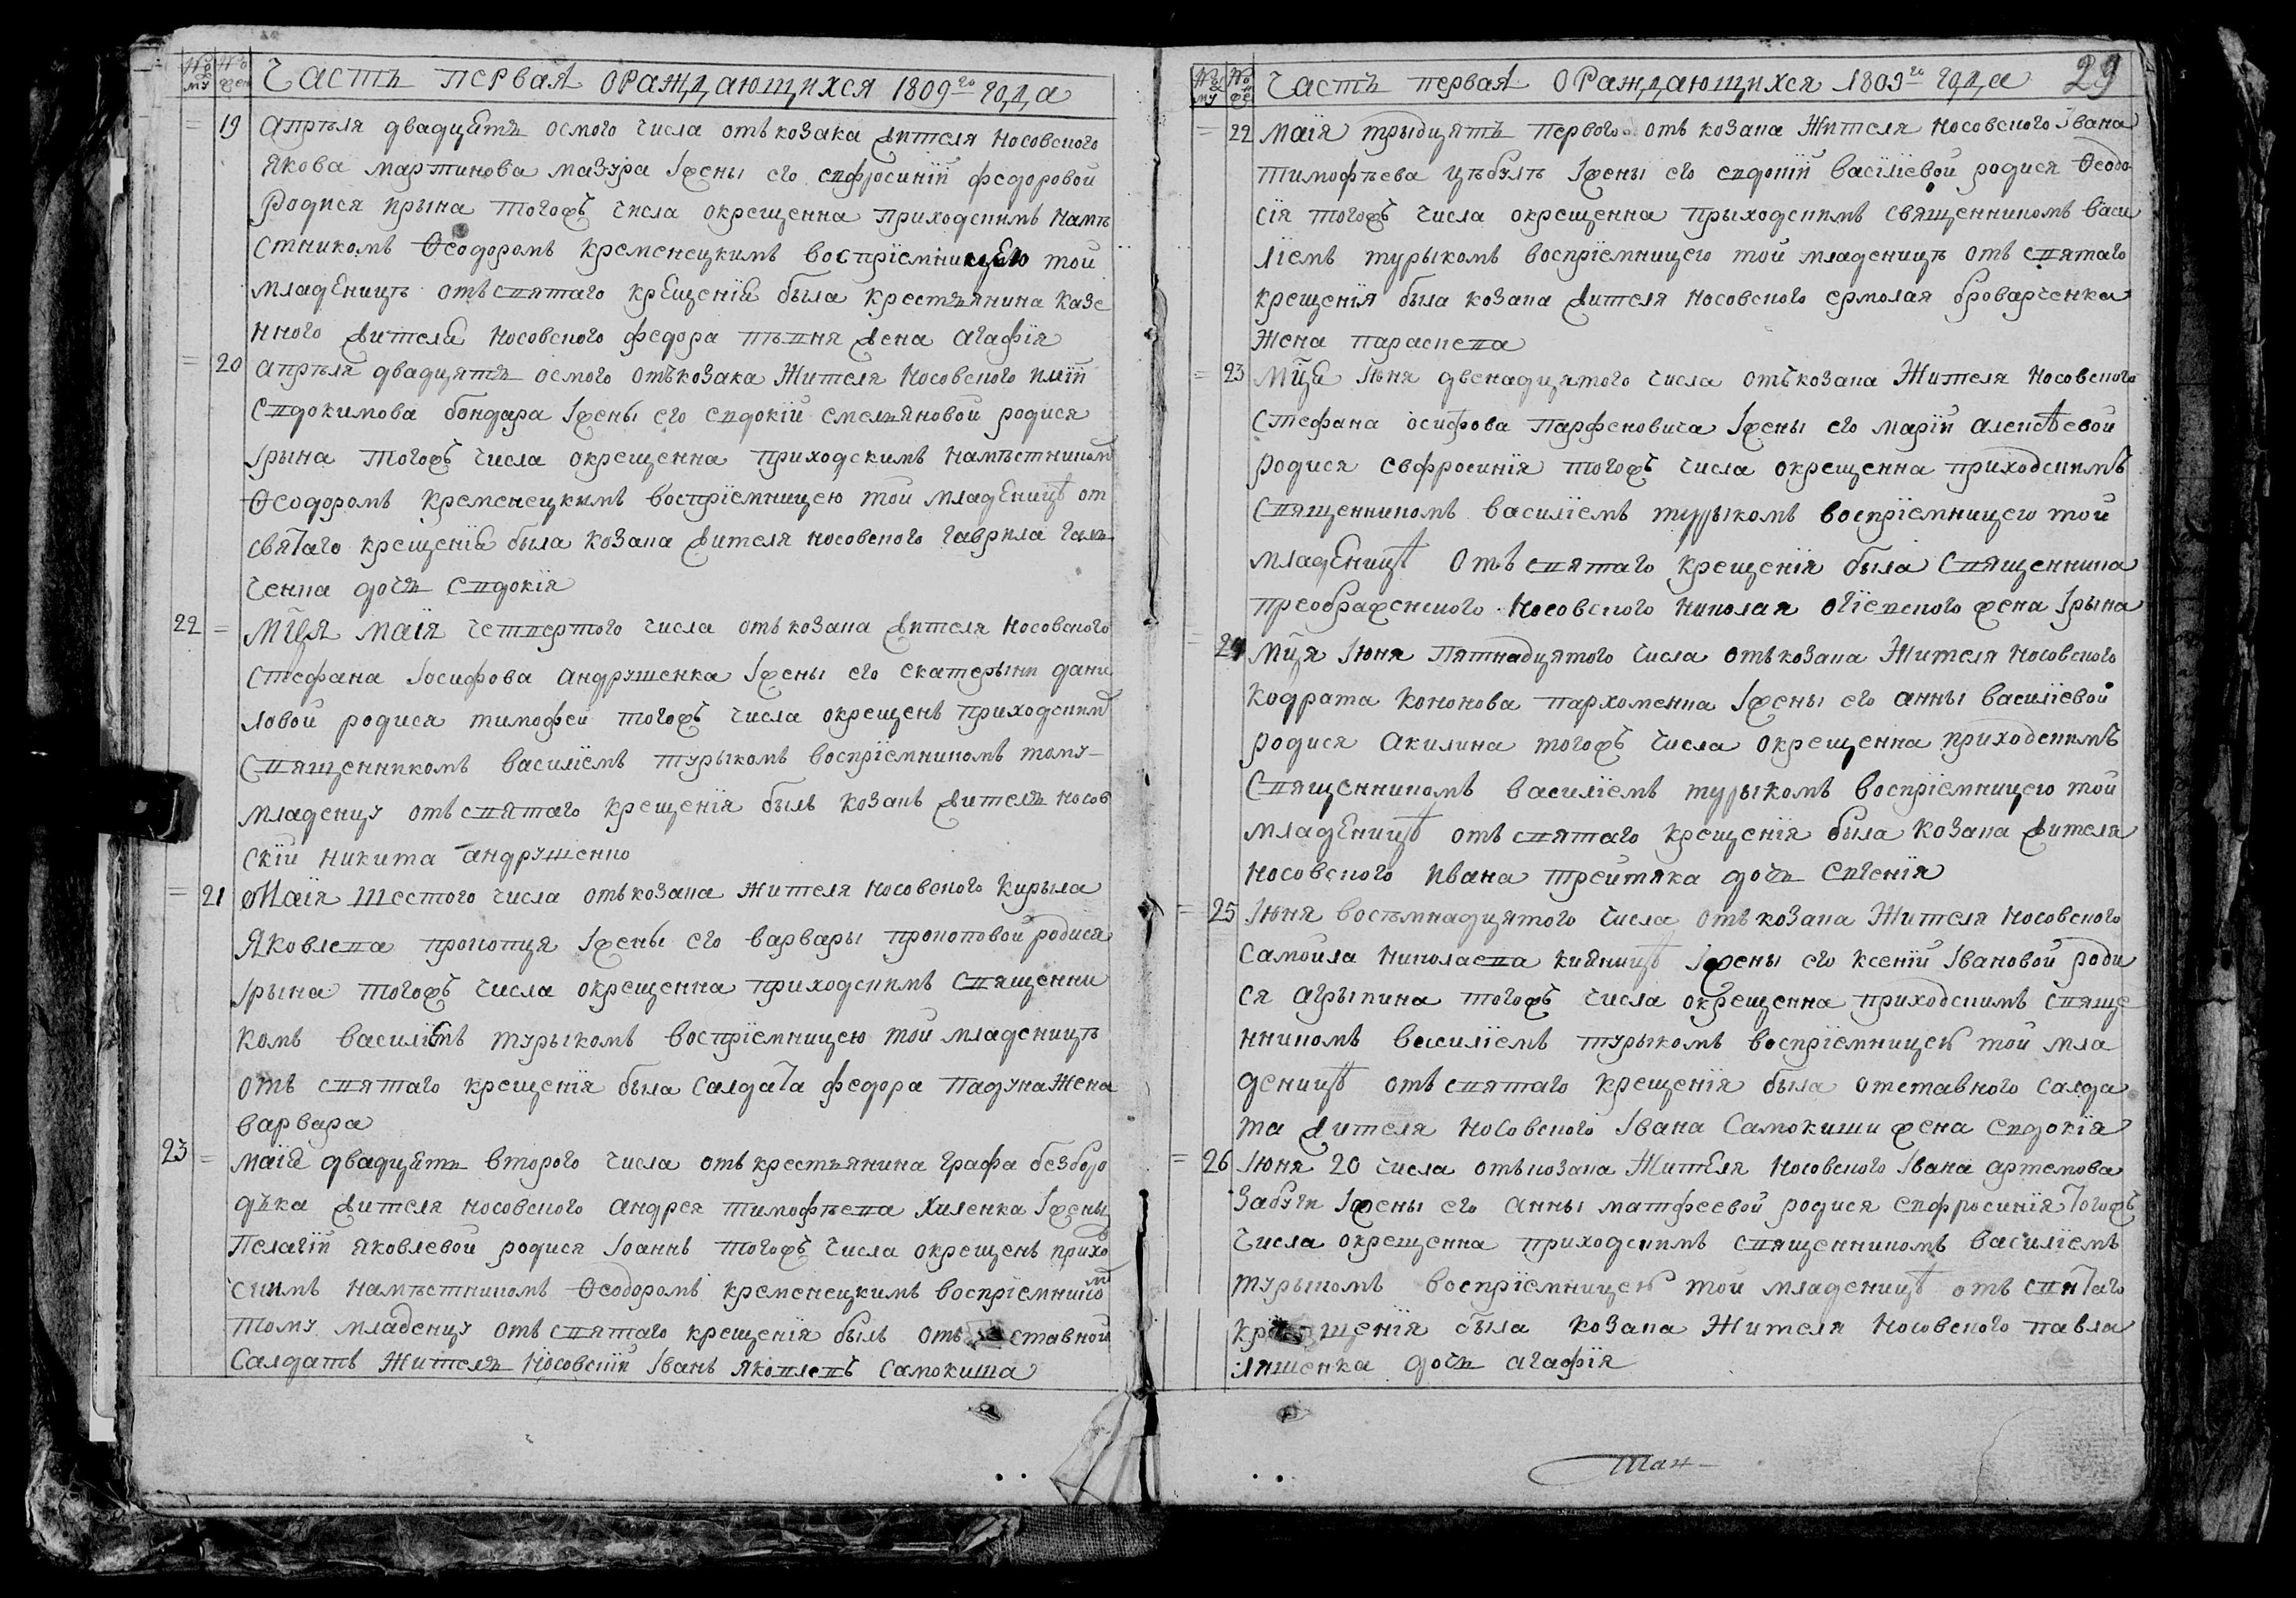 Часть первая ораждающихся 1809го года
19 Апрѣля двадцять осмого числа отъ козака жителя носовского
Якова мартинова мазура Iжены его евфросинїи федоровой
родися ирына тогожъ числа окрещенна приходскимъ намѣ
стникомъ Ѳеодоромъ кременецкимъ воспрїемницею той
младеницѣ отъ святаго крещенїя была крестьянина казе
нного жителя носовского федора пѣвня жена агафїя
20 апрѣля двадцять осмого отъ козака жителя носовского илїи
Евдокимова бондара Iжены его евдокїи емельяновой родися
Iрына тогожъ числа окрещенна приходскимъ намѣстником
Ѳеодоромъ кременецкимъ воспрїемницею той младеницѣ от
святаго крещенїя была козака жителя носовского гаврила галь
ченка дочь Евдокїя
22 Мця маїя четвертого числа отъ козака жителя носовского
Стефана Iосифова андрушенка Iжены его екатерыни дани
ловой родися тимофей тогожъ числа окрещенъ приходским
Священникомъ василїемъ турыкомъ воспрїемникомъ тому
младенцу отъ святаго крещенїя былъ козакъ житель носов
скїй никита андрушенко
21 Маїя шестого числа отъ козака жителя носовского кирыла
Яковлева прокопця Iжены его варвары прокоповой родися
Iрына тогожъ числа окрещенна приходскимъ священни
комъ василїемъ турыкомъ воспрїемницею той младеницѣ
отъ святаго крещенїя была салдата федора падуна жена
варвара
23 маїя двадцять второго числа отъ крестьянина графа безборо
дька жителя носовского андрея тимофѣева хиленка Iжены
Пелагїи яковлевой родися Iоаннъ тогожъ числа окрещенъ прихо
скимъ намѣстникомъ Ѳеодоромъ кременецкимъ воспрїемником
тому младенцу отъ святаго крещенїя былъ отъ ставной
Салдатъ житель носовскїй Iванъ яковлевъ Самокиша
Часть первая ораждающихся 1809го года 29
22 маїя трыдцять первого отъ козака жителя носовского Iвана
тимофѣева цѣбулѣ Iжены его евдокїи василїевой родися Ѳеодо
сїя тогожъ числа окрещенна прыходскимъ священникомъ васи
лїемъ турыкомъ воспрїемницею той младеницѣ отъ святаго
крещенїя была козака жителя носовского ермолая броварченка
жена параскева
23 Мца Iюня двенадцятого числа отъ козака жителя носовского
Стефана осифова парфеновича Iжены его марїи алексѣевой
родися евфросинїя тогожъ числа окрещенна приходскимъ
Священникомъ василїемъ турыкомъ воспрїемницею той
младеницѣ отъ святаго крещенїя была священника
преображенского носовского николая огїевского жена Iрына
24 Мця Iюня пятнадцятого числа отъ козака жителя носовского
кодрата кононова пархоменка Iжены его анны василїевой
родися акилина тогожъ числа окрещенна приходскимъ
Священникомъ василїемъ турыкомъ воспрїемницею той
младеницѣ отъ святаго крещенїя была козака жителя
носовского ивана трейтяка дочь евгенїя
25 Iюня восьмнадцятого числа отъ козака жителя носовского
Самойла николаева кияницѣ Iжены его ксенїи Iвановой роди
ся агрыпина тогожъ числа окрещенна приходскимъ свяще
нникомъ василїемъ турыкомъ воспрїемницею той мла
деницѣ отъ святаго крещенїя была отставного салда
та жителя носовского Iвана Самокиши жена евдокїя
26 Iюня 20 числа отъ козака жителя носовского Iвана артемова
Забуги Iжены его анны матфеевой родися евфросинїя тогожъ
числа окрещенна приходскимъ священникомъ василїемъ
турыкомъ воспрїемницею той младеницѣ отъ святаго
крещенїя была козака жителя носовского павла
ляшенка дочь агафїя